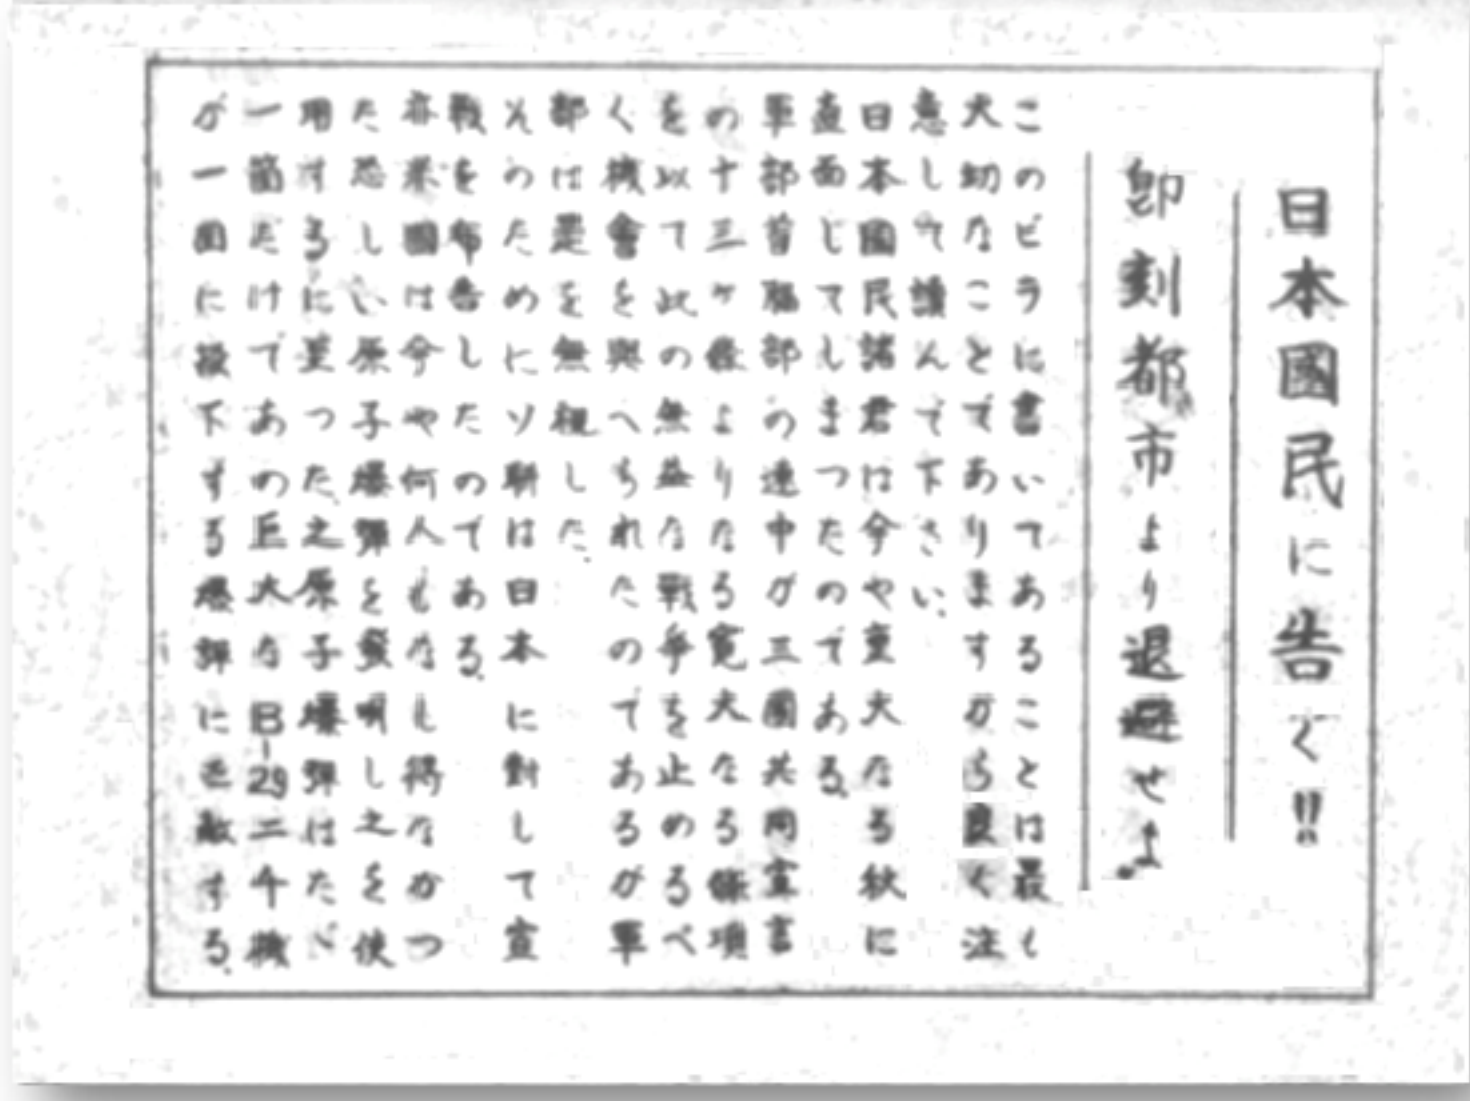 日本國民に告ぐ!!
即刻都市より退避せよ。
このビラに書いてあることは最も
大切なことでありますから良く注
意して讀んで下さい、
日本國民諸君は今や重大なる秋に
直面してしまつたのである、
軍部首腦部の連中が三國共同宣言
の十三ヶ條よりなる寛大なる條項
を以て此の無益な戰爭を止めるべ
く機會を與へられたのであるが軍
部は是を無視した、
そのためにソ聯は日本に對して宣
戰を布告したのである、
亦米國は今や何人もなし得なかつ
た恐しい原子爆弾を發明し之を使
用するに至つた、之原子爆弾はたゞ
一箇だけであの巨大なB-29二千機
が一回に投下する爆弾に匹敵する、